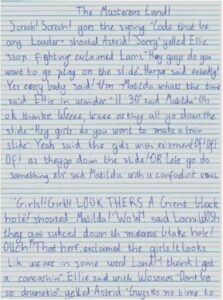 The Musterous Land!
Screch! Screch! goes the swing "Code that be
any Louder" shouted Astrid. Sorry" yelled Ellie
Stop Fighting exclaimed Larni. "Hey guys do you
want to go play on the slide. Harper said exitedly!
Yes every body said! "Um Matilda whats the time
said Ellie in wonder." 11:30" said Matilda "Oh
ok thanks. Weeee, weee as they all go down the
slide "Hey girls do you want to make a train
slide. Yeah said the girls with exitment Of! Of!
Of! as they go down the slide! "OR Lets go do
something els said Matilda with a confadint voice
"Girls!! Girls!! LOOK THERS A Grent black
hole! shouted Matilda! "WOW" said Larni
they got sucked down th musterous blake hole!
Ouch" "That here, exclamed the girls. It Looks
Like we are in some werd Land! "I think I got
a concashin". Ellie said with "Dont be
so dramatic" yelled Astrid "Guys its no time to